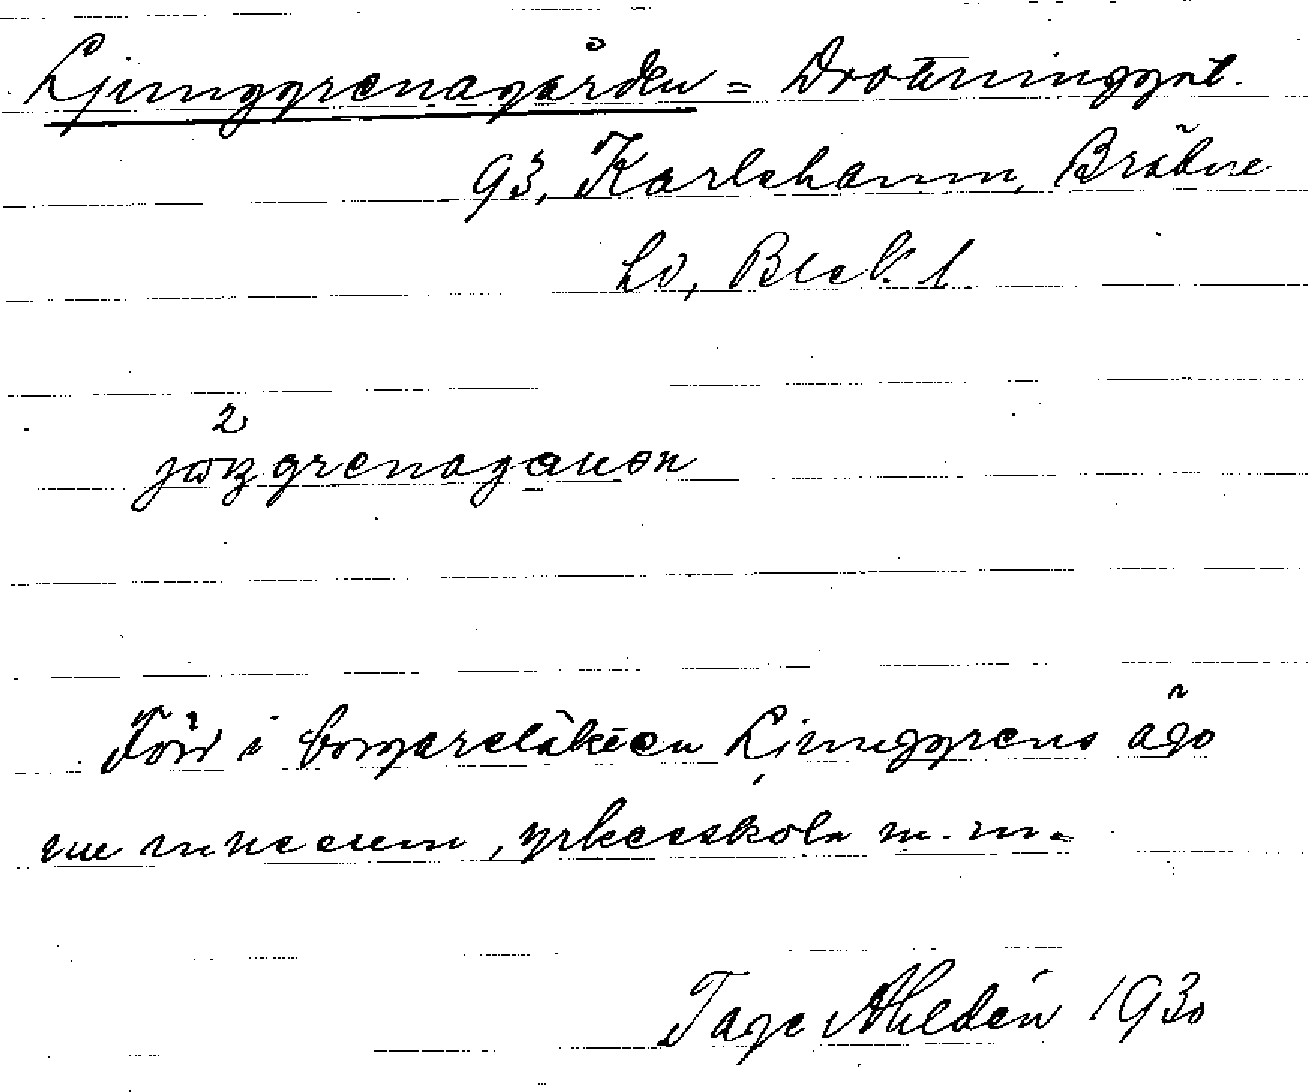 Ljunggrenagården = Drottninggat.
93, Karlshamn, Bräkne
hd, Blek. l.
Förr i borgaresläkten Ljunggrens ägo
nu museum, yrkesskola m.m.
Tage Ahldén 1930